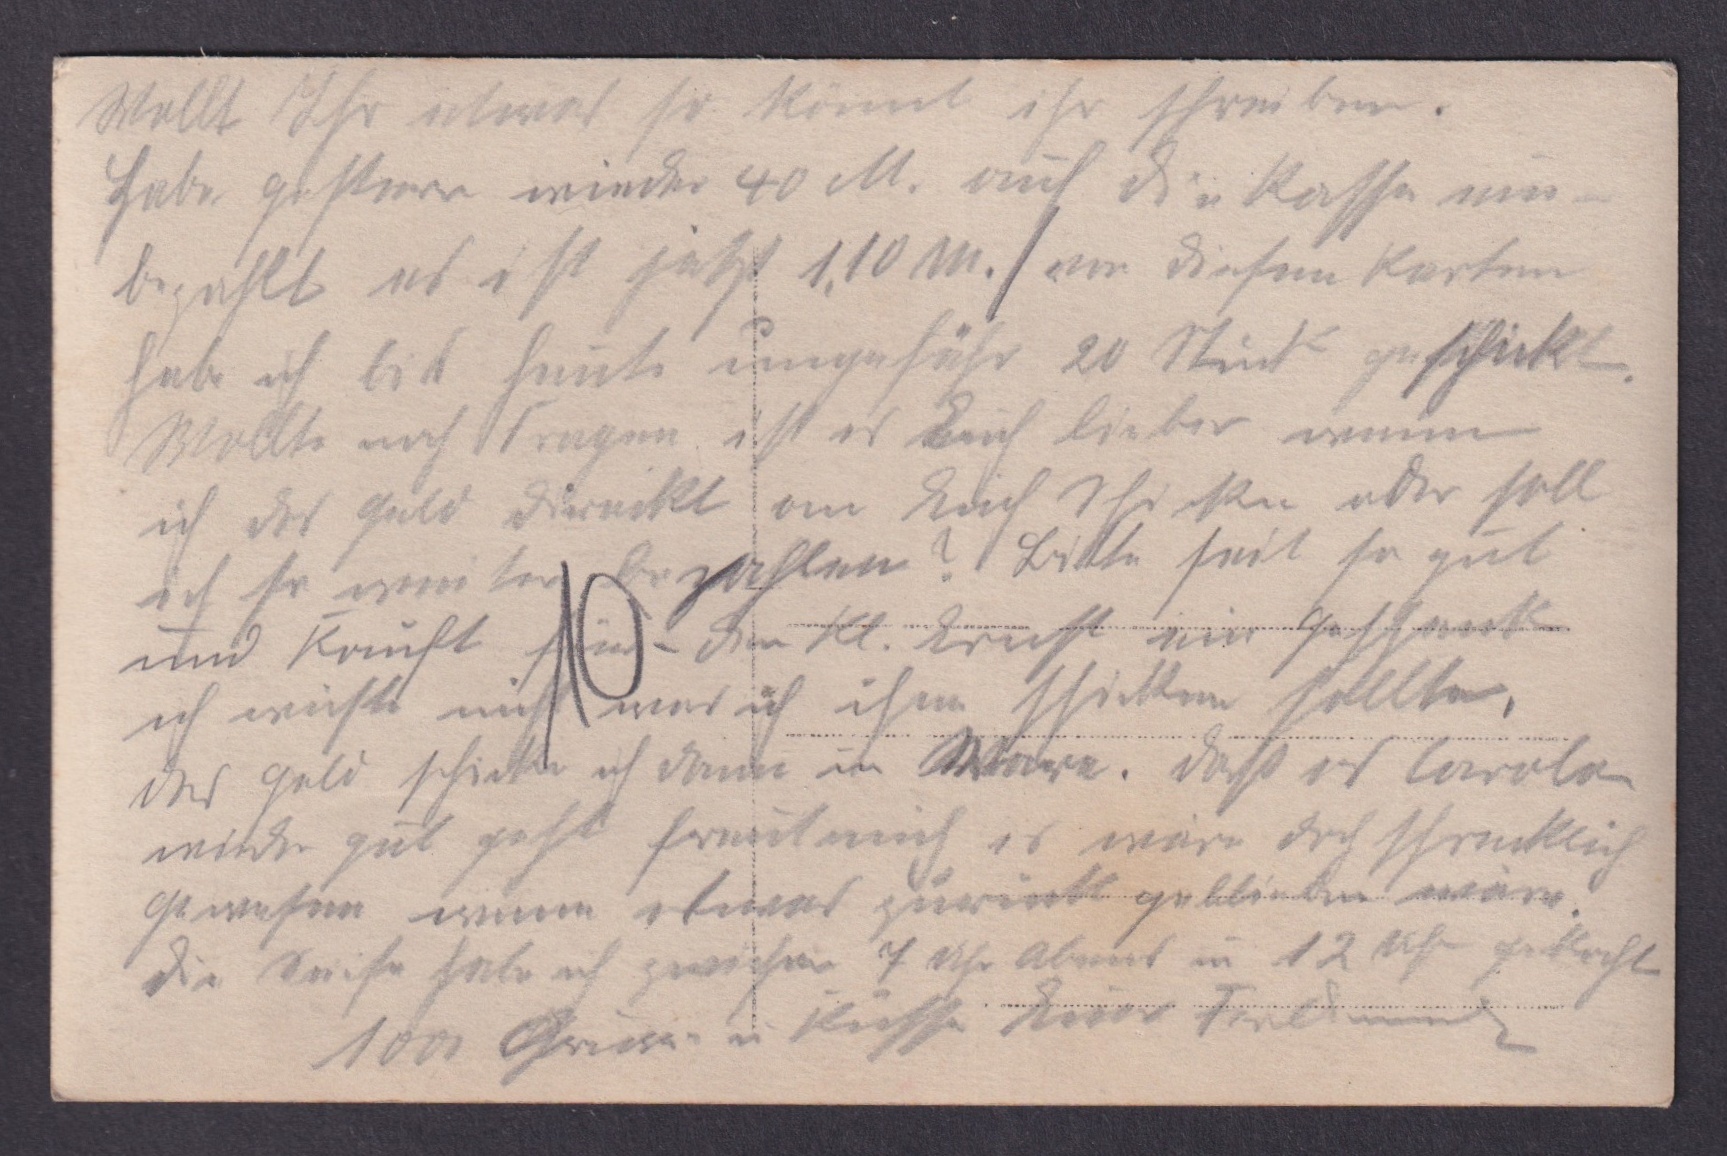 Wollt Ihr etwas so könnt ihr schreiben.
Habe gestern wieder 40 M. auf die Kasse ein-
bezahlt es ist jetzt 110 M. / von diesen Karten
habe ich bis heute ungefähr 20 Stück geschickt.
Wollte noch fragen ist es Euch lieber wenn
ich das Geld direckt an Euch schicke oder soll
ich so weiter bezahlen? Bitte seit so gut
und kauft für den kl. Ernst ein Geschenk
ich wüste nicht was ich ihm schicken sollte,
das Geld schicke ich dann in Ware. Daß es Carola
wieder gut geht freut mich es wäre doch schrecklich
gewesen wenn etwas zurück geblieben wäre.
die Seife habe ich zwischen 7 Uhr Abends u 12 Uhr gekocht
1000 Grüsse u Küsse Euer Ferdinand
10